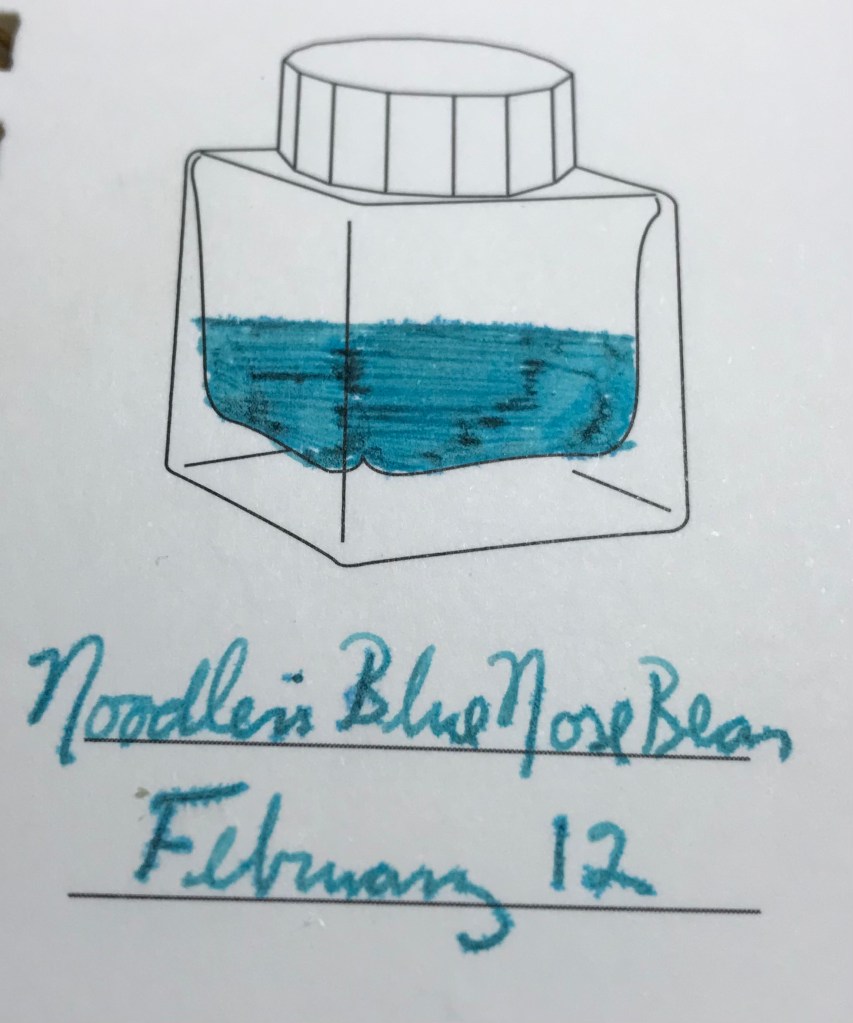 Noodler's Blue Nose Bear
February 12